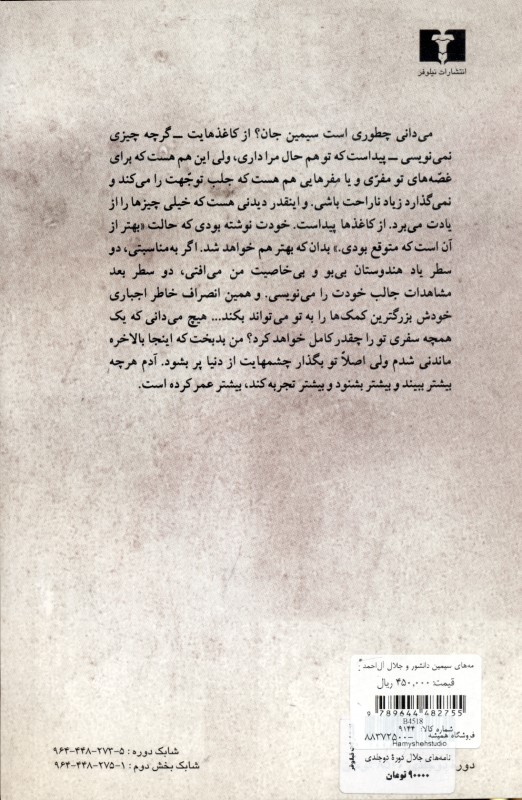 انتشارات نیلوفر
می‌دانی چطوری است سیمین جان؟ از کاغذهایت ــ گرچه چیزی
نمی‌نویسی ــ پیداست که تو هم حال مرا داری، ولی این هم هست که برای
غصّه‌های تو مفرّی و یا مفرهایی هم هست که جلب توجّهت را می‌کند و
نمی‌گذارد زیاد ناراحت باشی. و اینقدر دیدنی هست که خیلی چیزها را از
یادت می‌برد. از کاغذها پیداست. خودت نوشته بودی که حالت «بهتر از
آن است که متوقع بودی.» بدان که بهتر هم خواهد شد. اگر به‌مناسبتی، دو
سطر یاد هندوستان بی‌بو و بی‌خاصیت من می‌افتی، دو سطر بعد
مشاهدات جالب خودت را می‌نویسی. و همین انصراف خاطر اجباری
خودش بزرگترین کمک‌ها را به تو می‌تواند بکند... هیچ می‌دانی که یک
همچه سفری تو را چقدر کامل خواهد کرد؟ من بدبخت که اینجا بالاخره
ماندنی شدم ولی اصلاً تو بگذار چشمهایت از دنیا پر بشود. آدم هرچه
بیشتر ببیند و بیشتر بشنود و بیشتر تجربه کند، بیشتر عمر کرده است.
مه‌های سیمین دانشور و جلال آل‌احمد
قیمت: ۴۵۰,۰۰۰ ریال
9 789644 482755
B4518
شماره کالا: ۹۱۴۴
فروشگاه همیشه ۸۸۳۷۲۵۰۰-
Hamyshehstudio
نامه‌های جلال دورهٔ دوجلدی
۹۰۰۰۰ تومان
نیلوفر
دور
شابک دوره : ۵-۲۷۳-۴۴۸-۹۶۴
شابک بخش دوم : ۱-۲۷۵-۴۴۸-۹۶۴